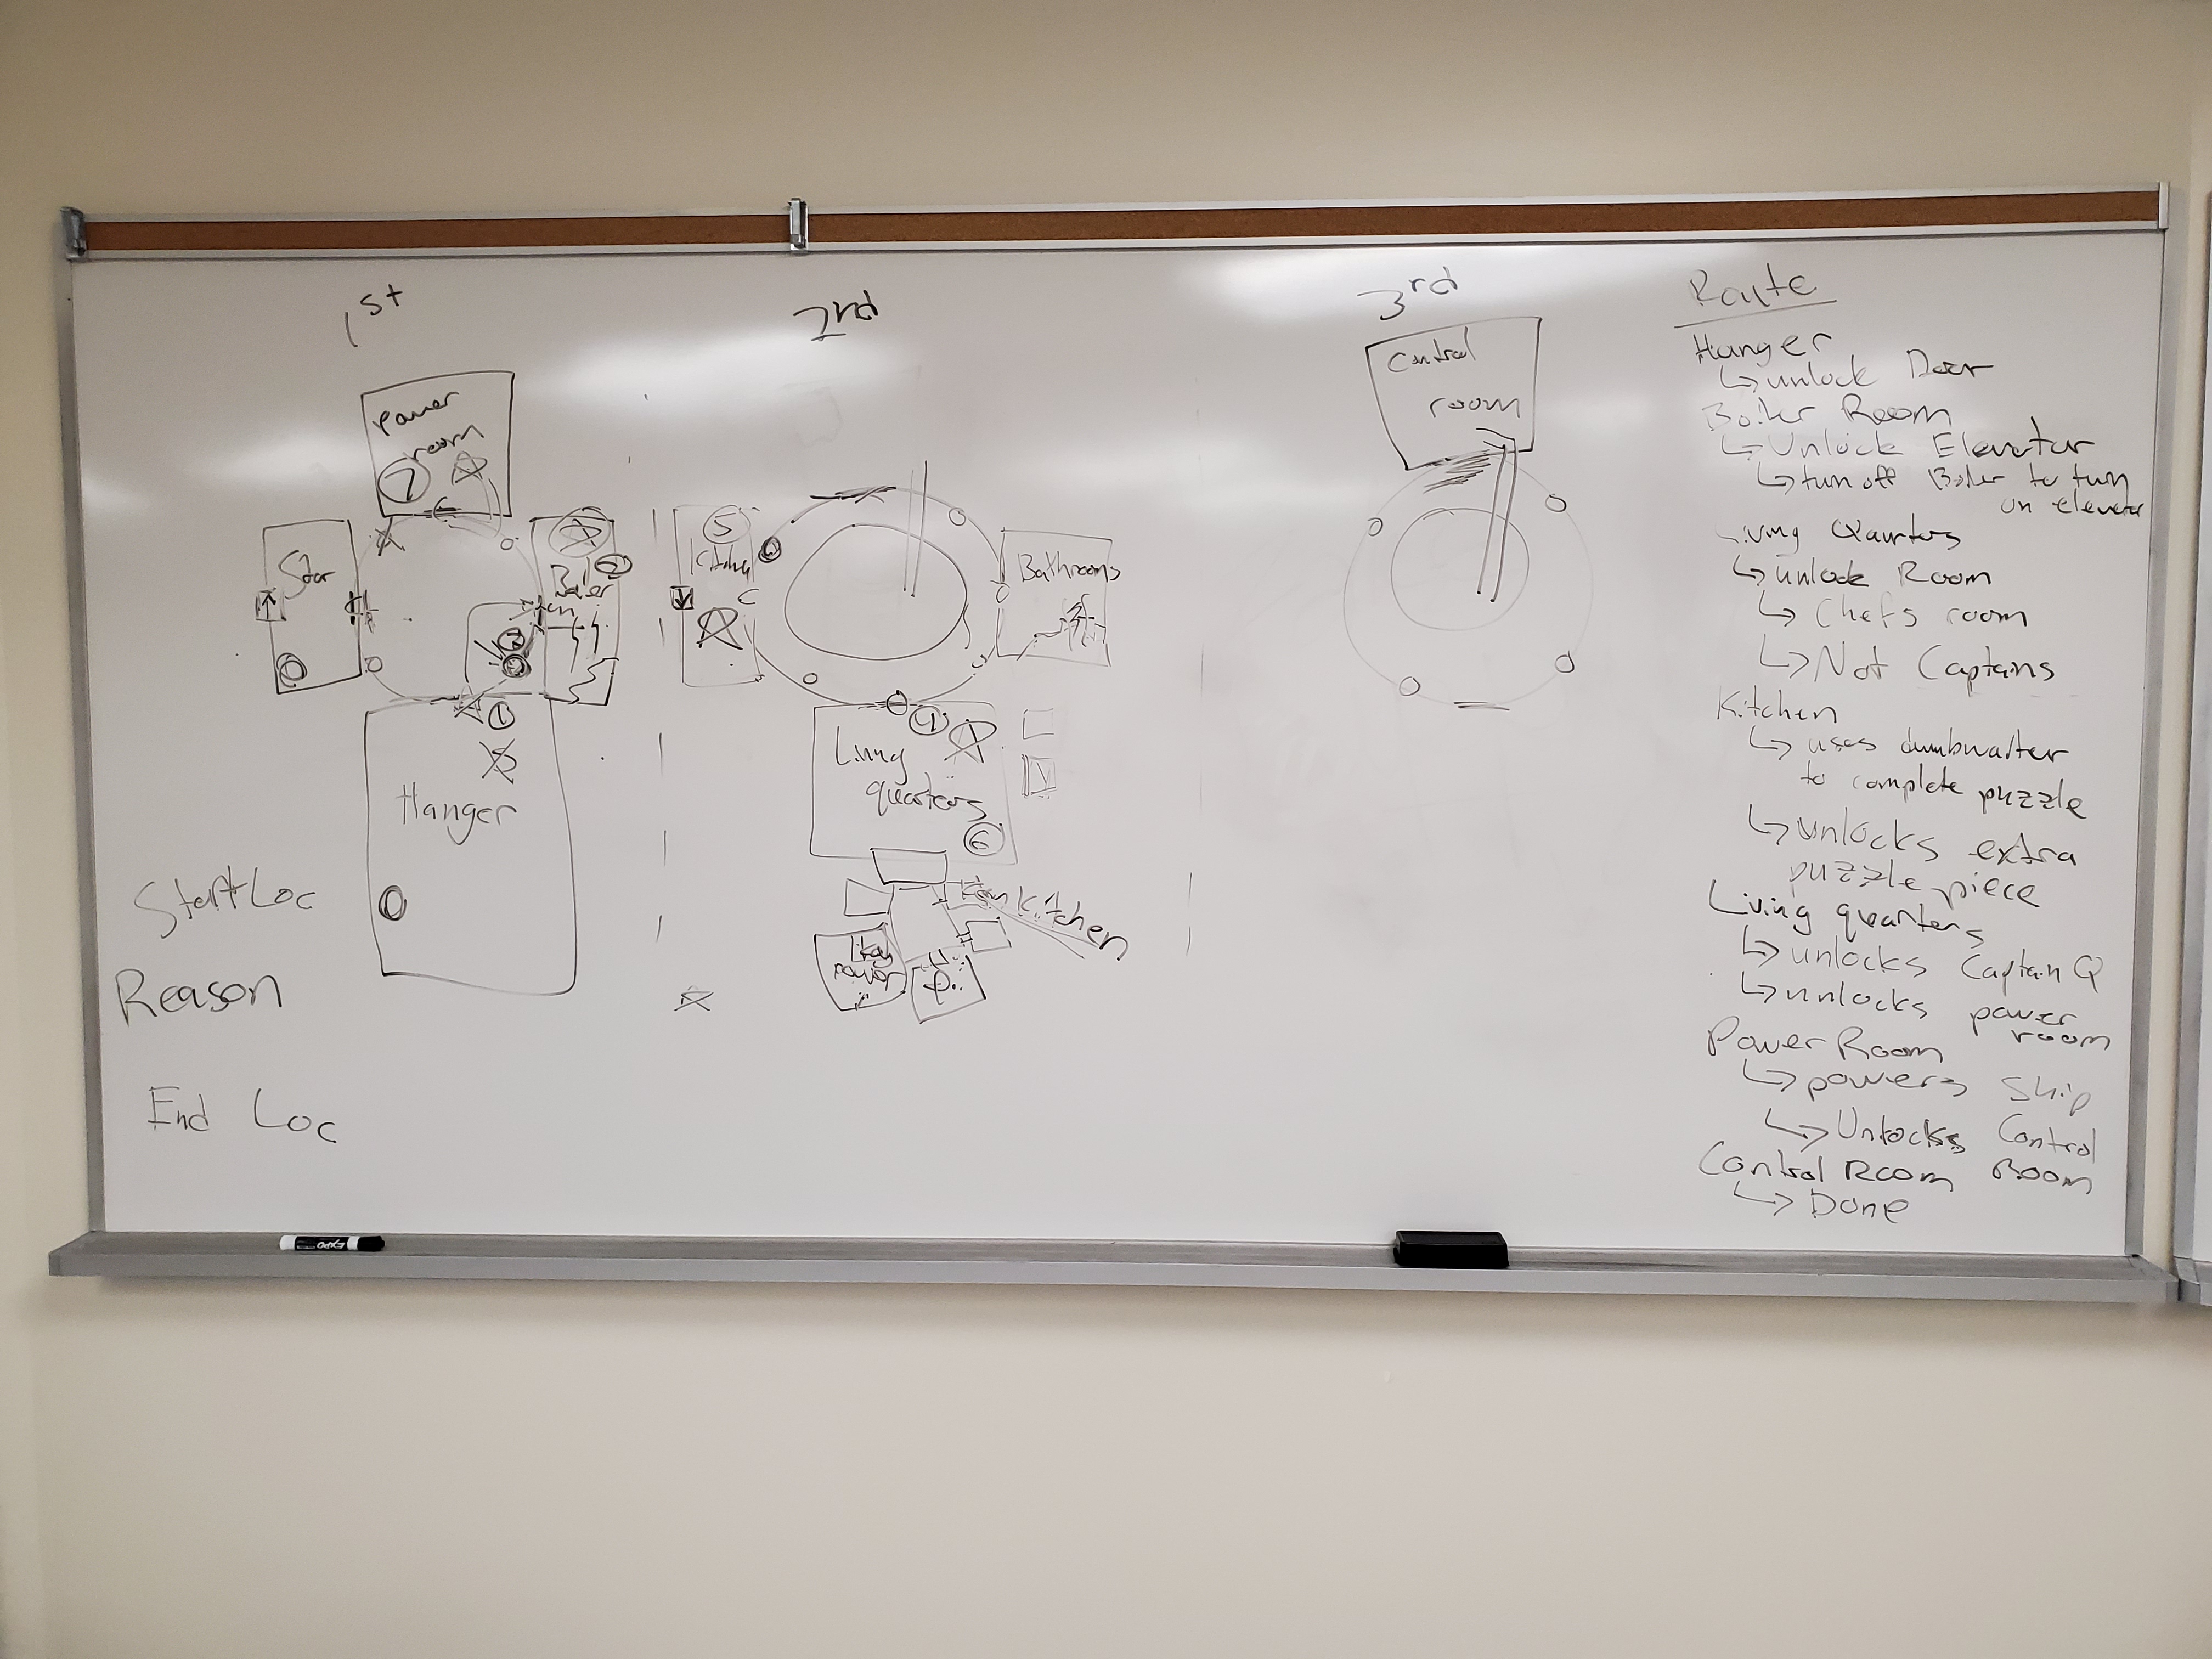 1st
2nd
3rd
Power
room
7
Stor
Boiler
2
Hanger
1
5
Bathrooms
Living
quarters
4
6
from Kitchen
Control
room
Start Loc
Reason
End Loc
Route
Hanger
↳ unlock Door
Boiler Room
↳ Unlock Elevator
↳ turn off Boiler to turn
on elevator
Living Quarters
↳ unlock Room
↳ Chefs room
↳ Not Captains
Kitchen
↳ uses dumbwaiter
to complete puzzle
↳ unlocks extra
puzzle piece
Living quarters
↳ unlocks Captain Q
↳ unlocks power
room
Power Room
↳ powers Ship
↳ Unlocks Control
Room
Control Room
↳ Done
EXPO